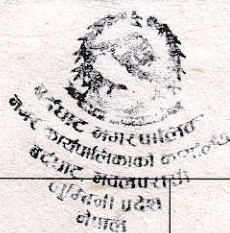 बर्दघाट नगरपालिका
नगर कार्यपालिकाको कार्यालय
बर्दघाट नवलपरासी
लुम्बिनी प्रदेश
नेपाल